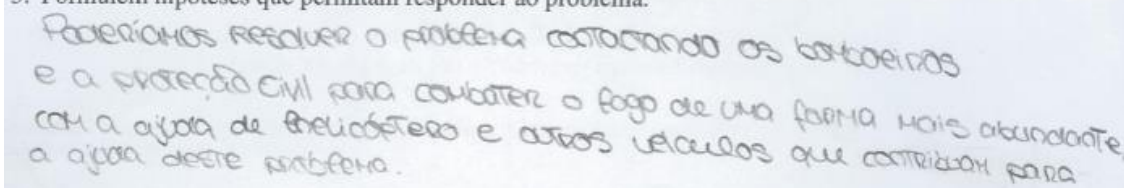 3. Formulem hipóteses que permitam responder ao problema.
Poderíamos resolver o problema contactando os bombeiros
e a proteção civil para combater o fogo de uma forma mais abundante,
com a ajuda de helicóptero e outros veículos que contribuam para
a ajuda deste problema.